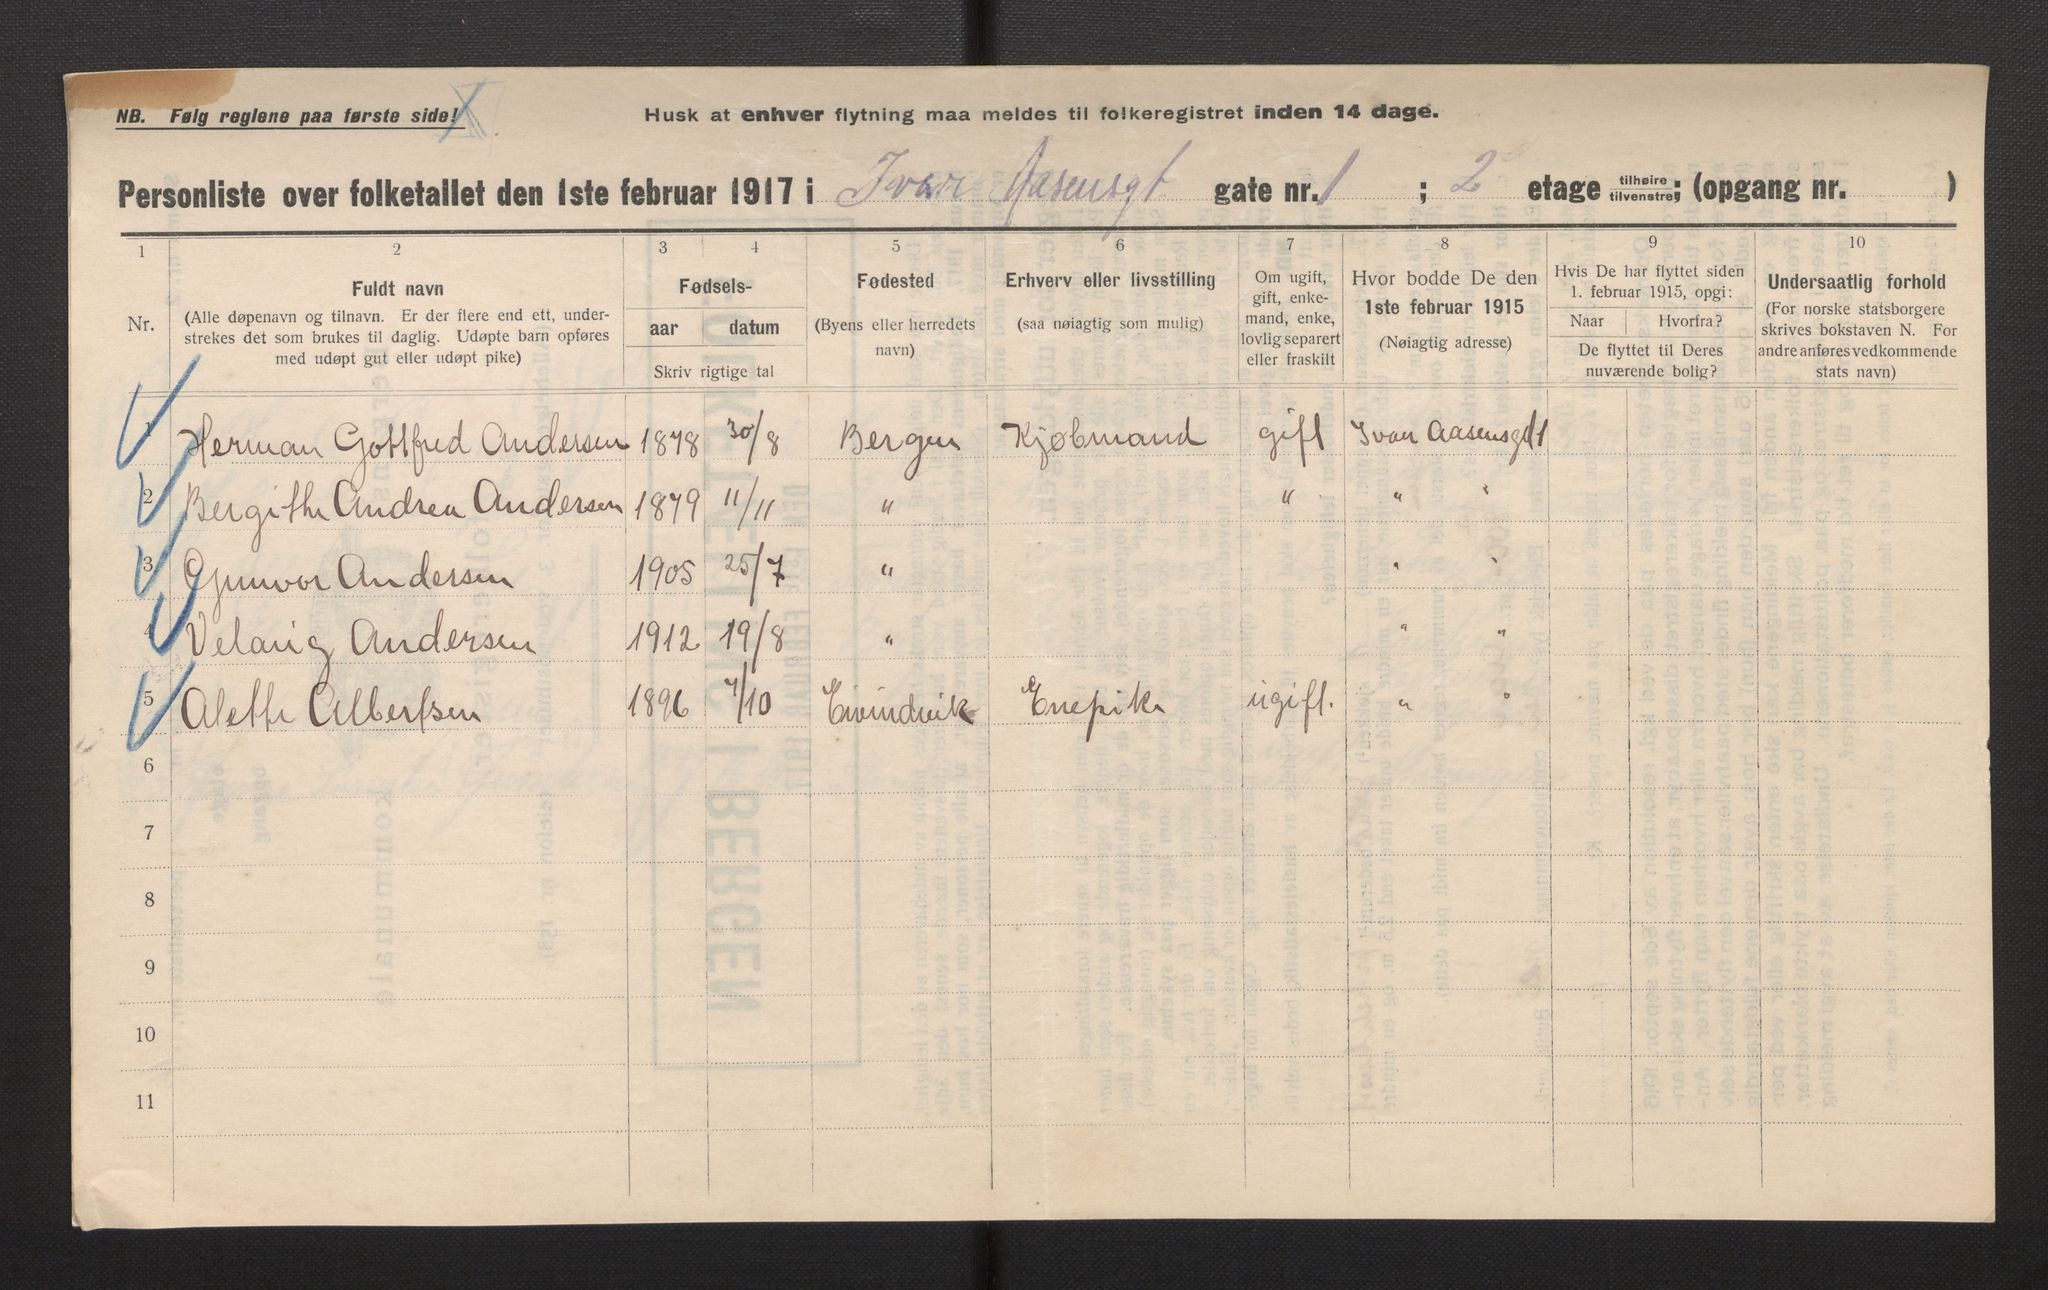 NB. Følg reglene paa første side!
Husk at enhver flytning maa meldes til folkeregistret inden 14 dage.
Personliste over folketallet den 1ste februar 1917 i Ivar Aasensgt gate nr. 1 ; 2 etage tilhøire tilvenstre; (opgang nr. )
1 2 3 4 5 6 7 8 9 10
Nr.
Fuldt navn
(Alle døpenavn og tilnavn. Er der flere end ett, under-
strekes det som brukes til daglig. Udøpte barn opføres
med udøpt gut eller udøpt pike)
Fødsels-
aar datum
Skriv rigtige tal
Fødested
(Byens eller herredets
navn)
Erhverv eller livsstilling
(saa nøiagtig som mulig)
Om ugift,
gift, enke-
mand, enke,
lovlig separert
eller fraskilt
Hvor bodde De den
1ste februar 1915
(Nøiagtig adresse)
Hvis De har flyttet siden
1. februar 1915, opgi:
Naar Hvorfra?
De flyttet til Deres
nuværende bolig?
Undersaatlig forhold
(For norske statsborgere
skrives bokstaven N. For
andre anføres vedkommende
stats navn)
1 Herman Gottfred Andersen 1878 30/8 Bergen Kjøbmand gift Ivar Aasensgt 1
2 Bergithe Andrea Andersen 1879 11/11 " " " "
3 Gunvor Andersen 1905 25/7 " " "
4 Andersen 1912 19/8 " " "
5 Alethe Albertsen 1896 7/10 Eivindvik Enepike ugift. " "
6
7
8
9
10
11